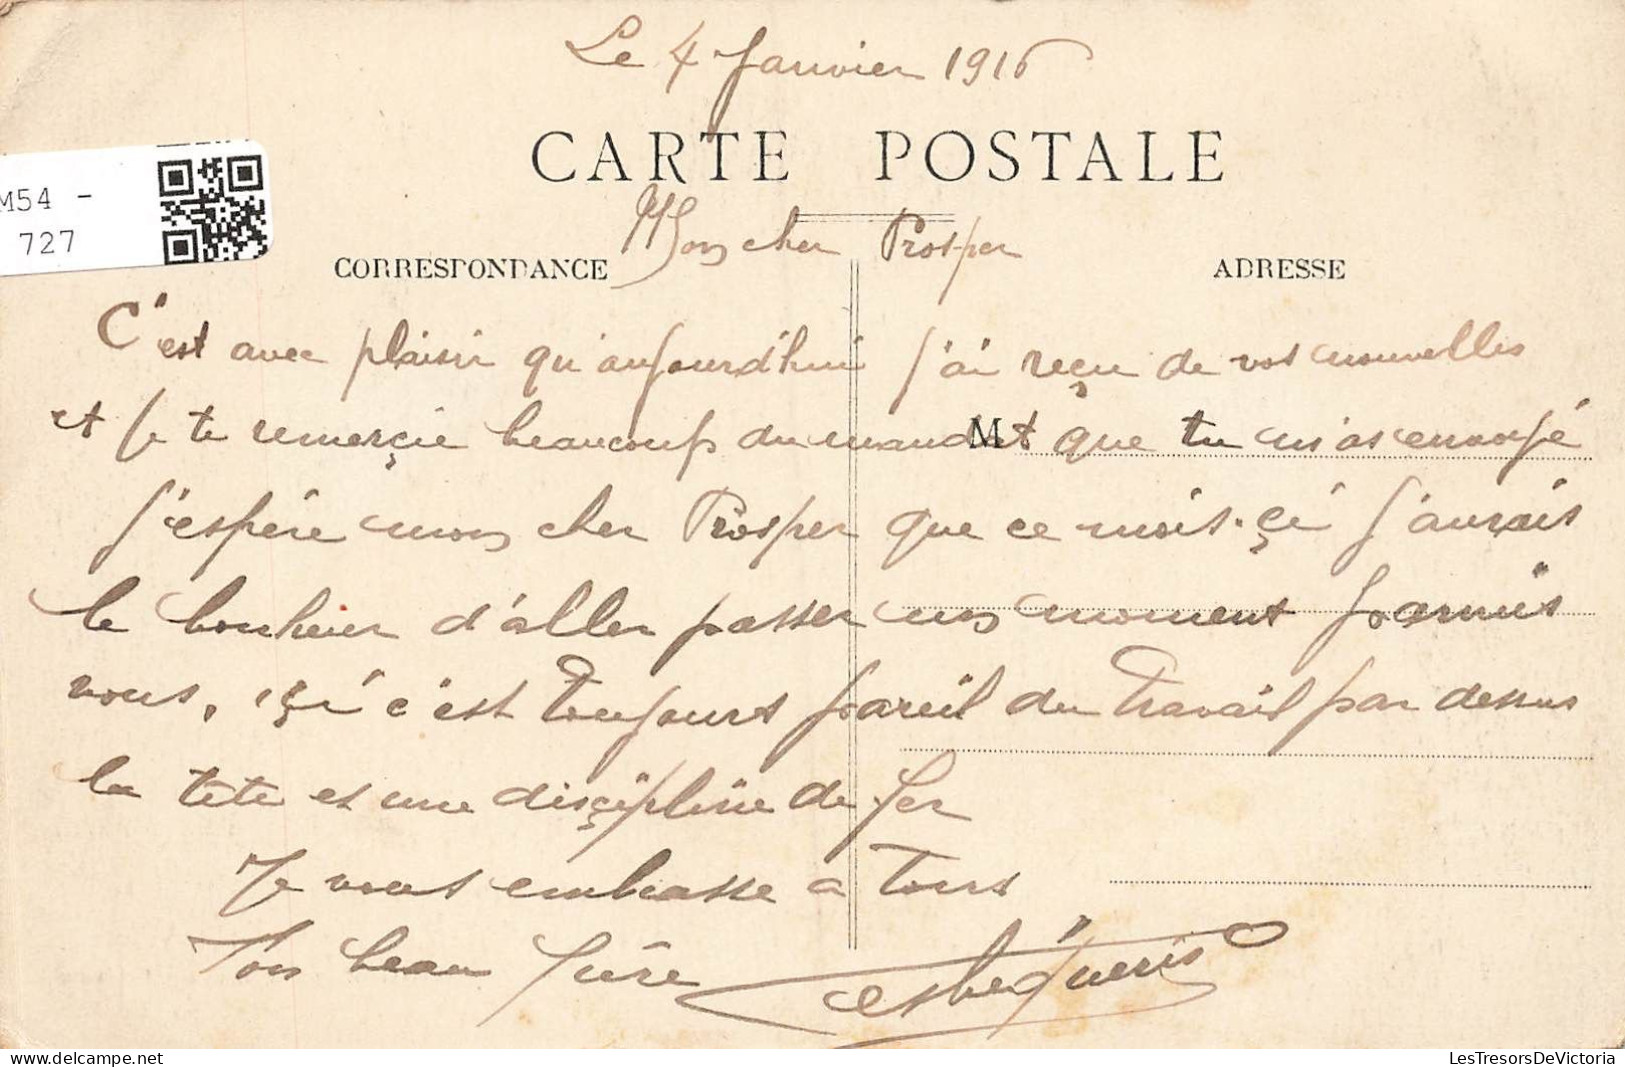 Le 4 Janvier 1916
CARTE POSTALE
M54 -
727
Mon cher Prosper
CORRESPONDANCE
ADRESSE
C'est avec plaisir qu'aujourd'hui j'ai reçu de vos nouvelles
et je te remerçie beaucoup du mandat que tu m'as envoyé
M
j'espère mon cher Prosper que ce mois-çi j'aurais
le bonheur d'aller passer un moment parmis
vous, içi c'est toujours pareil du travail par dessus
la tete et une disçipline de fer
Je vous embrasse a tous
Ton beau frère
LesTresorsDeVictoria